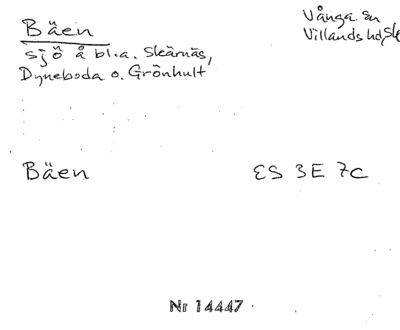 Bäen
Vånga sn
Villands hd, Sk
sjö å bl.a. Skärnäs,
Dyneboda o. Grönhult
Bäen
ES 3E 7c
Nr 14447